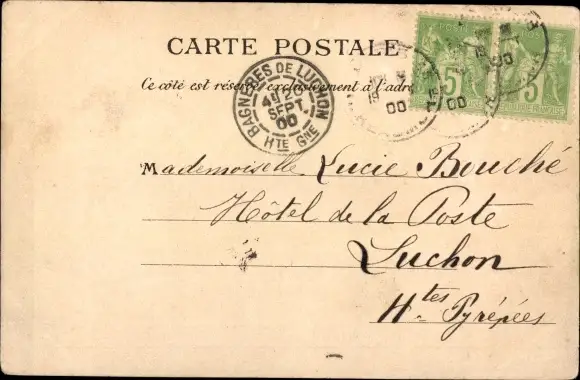 CARTE POSTALE
Ce côté est réservé exclusivement à l'adre
BAGNÈRES DE LUCHON
20
SEPT.
00
HTE GNE
5
5
00
00
00
Mademoiselle Lucie Bouché
Hôtel de la Poste
Luchon
Htes Pyrénées